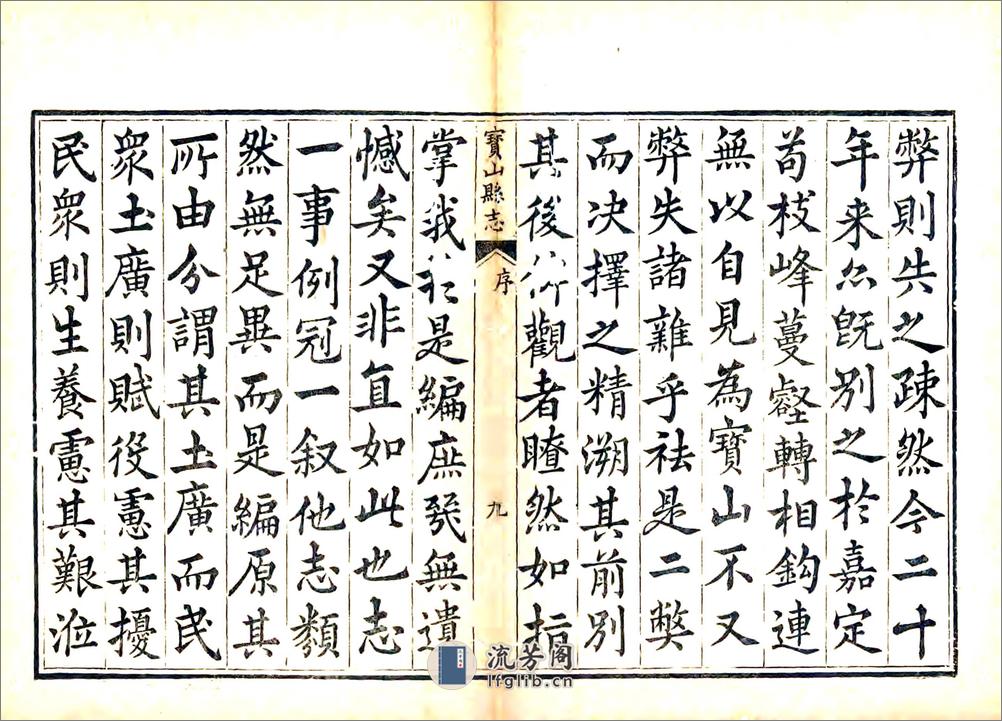 弊則失之疎然今二十
年来尒既别之於嘉定
苟枝峰蔓壑轉相鈎連
無以自見為寶山不又
弊失諸雜乎祛是二獘
而决擇之精溯其前别
其後 觀者瞭然如指
寶山縣志
序
九
掌我 是編庶㡬無遺
憾矣又非直如此也志
一事例冠一叙他志類
然無足異而是編原其
所由分謂其土廣而民
衆土廣則賦役慮其擾
民衆則生養慮其艱涖
流芳阁
lfglib.cn